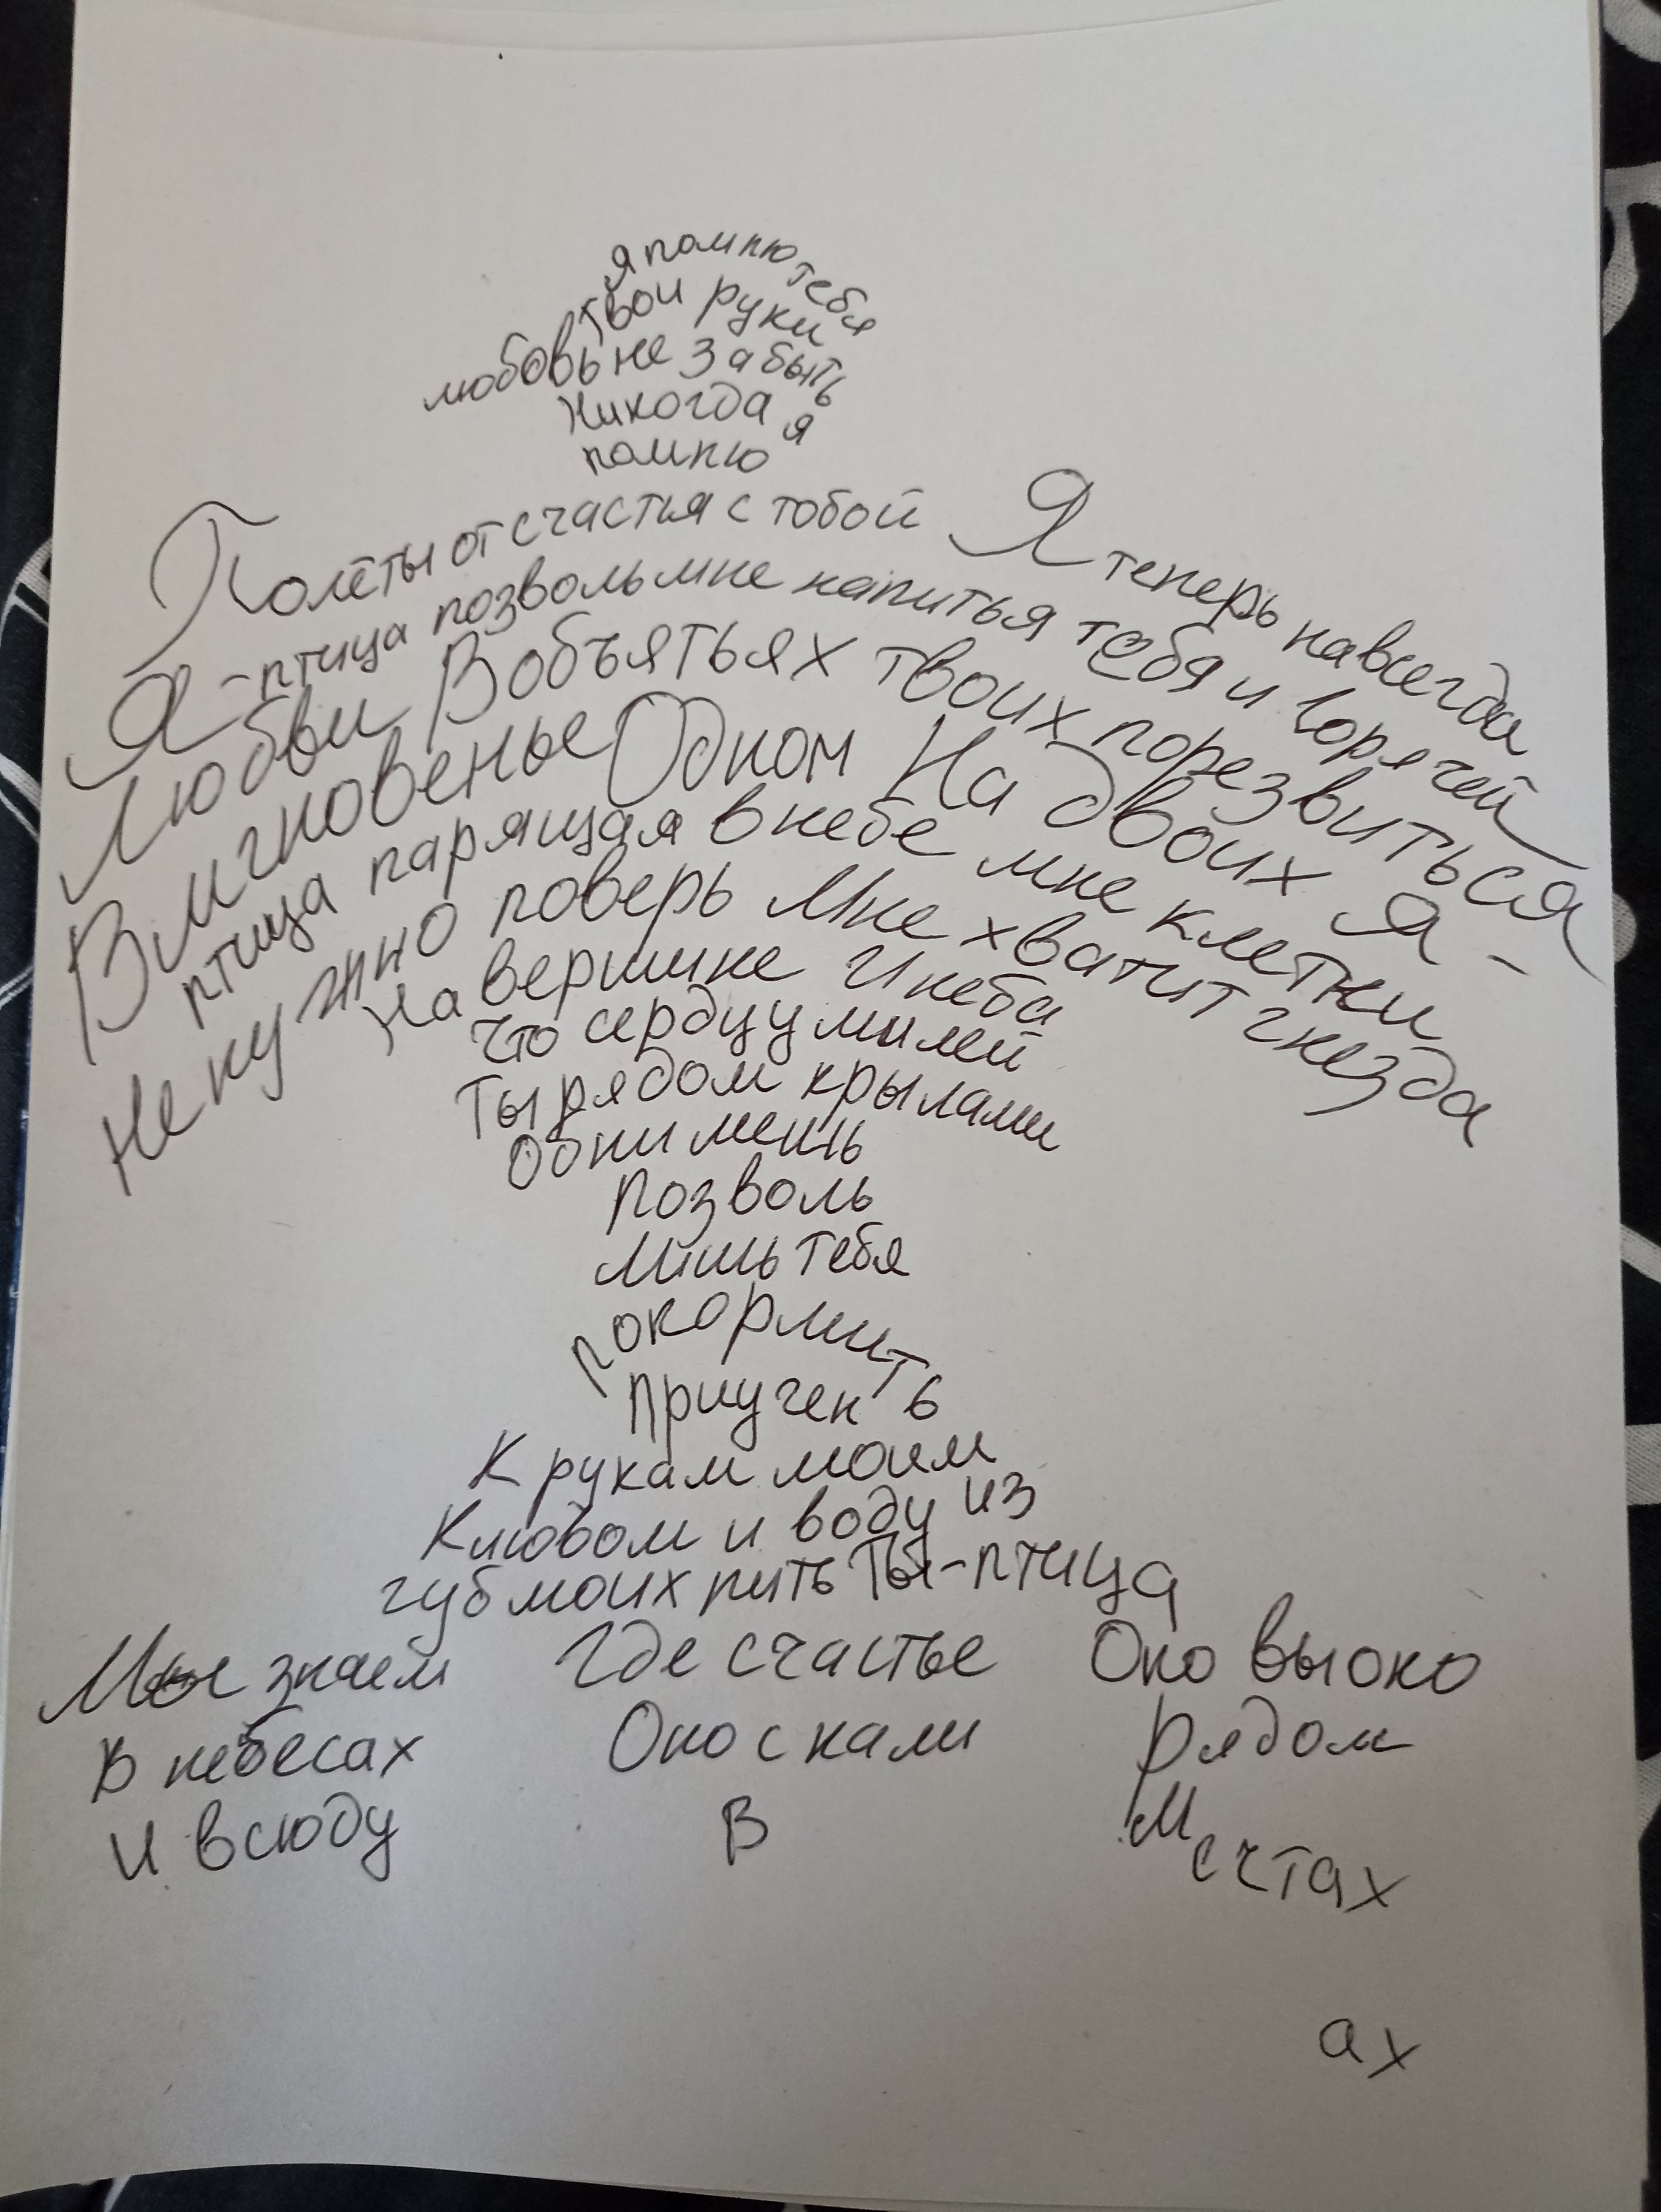 я помню тебя
твои руки
любовь не забыть
никогда я
помню
Полёты от счастья с тобой Я теперь навсегда
Я - птица позволь мне напиться тебя и горячей
Любви В объятьях твоих порезвиться
В мгновенье Одном На двоих Я -
птица парящая в небе мне клетки
Не нужно поверь Мне хватит гнезда
На вершине И неба
Что сердцу милей
Ты рядом крылами
Обнимешь
Позволь
Лишь тебя
покормить
Приучен
К рукам моим
Клювом и воду из
губ моих пить Ты-птица
Мы знаем Где счастье Оно выоко
В небесах Оно с нами Рядом
И всюду В Мечтах
ах